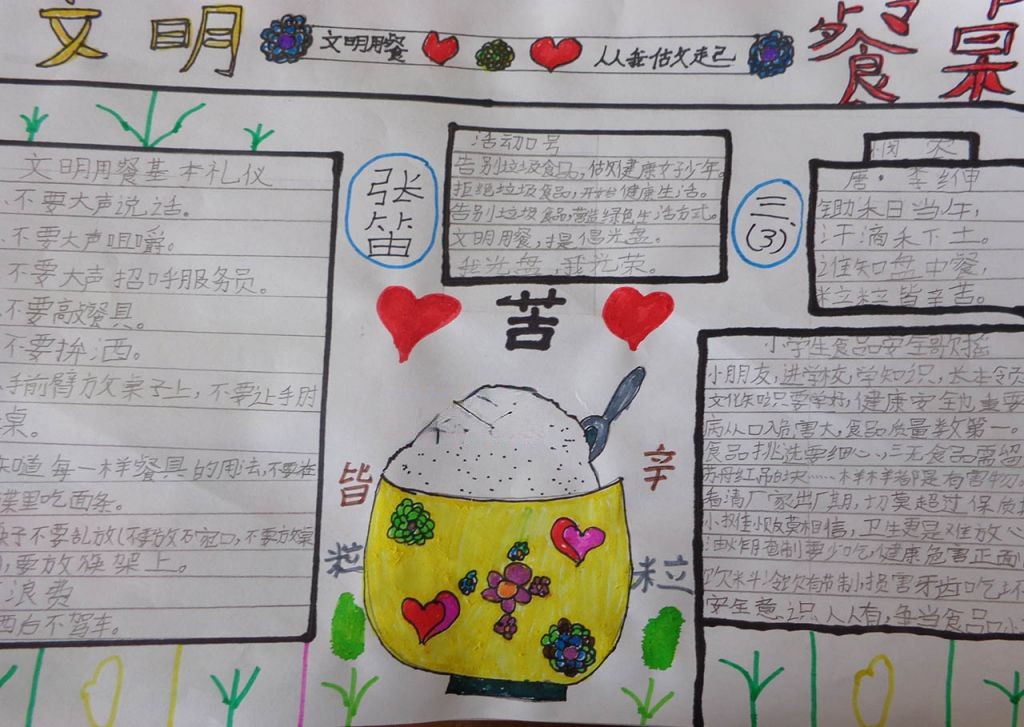 文明 文明用餐 从我做起 餐桌
文明用餐基本礼仪
不要大声说话。
不要大声咀嚼。
不要大声招呼服务员。
不要敲餐具。
不要挑洒。
手前臂放桌子上,不要让手肘
桌。
每一样餐具的用法,不要在
碟里吃面条。
子不要乱放
要放筷架上。
浪费
酒后不驾车。
张
笛
活动口号
告别垃圾食品,做健康好少年。
拒绝垃圾食品,开始健康生活。
告别垃圾食品,营造绿色生活方式。
文明用餐,提倡光盘。
我光盘,我光荣。
三、
(3)
悯农
唐·李绅
锄禾日当午,
汗滴禾下土。
谁知盘中餐,
粒粒皆辛苦。
小学生食品安全歌谣
小朋友,进学校,学知识,长本领
文化知识要学好,健康安全也重要
病从口入危害大,食品质量数第一。
食品挑选要细心,三无食品需留
样样都是有害物。
看清厂家出厂期,切莫超过保质
小摊小贩莫相信,卫生更是难放心
油炸腌制要少吃,健康危害正面
饮料冷饮有节制,损害牙齿吃坏
安全意识人人有,争当食品小
苦
皆 辛
粒 粒